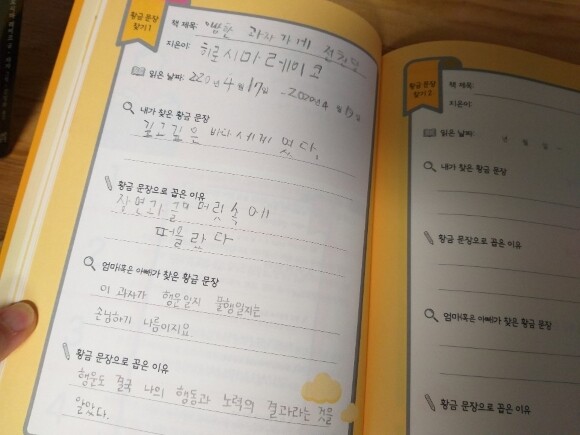 황금 문장 찾기 1
책 제목: 이상한 과자 가게 전천당
지은이: 히로시마 레이코
읽은 날짜: 2020년 4월 17일 ~ 2020년 4월
내가 찾은 황금 문장
바다세계 였다.
황금 문장으로 꼽은 이유
장면이 내 머릿속에
떠올랐다
엄마(혹은 아빠)가 찾은 황금 문장
이 과자가 행운일지 불행일지는
손님하기 나름이지요
황금 문장으로 꼽은 이유
행운도 결국 나의 행동과 노력의 결과라는 것을
알았다.
황금 문장 찾기 2
책 제목:
지은이:
읽은 날짜: 년 월 일 ~
내가 찾은 황금 문장
황금 문장으로 꼽은 이유
엄마(혹은 아빠)가 찾은 황금 문장
황금 문장으로 꼽은 이유